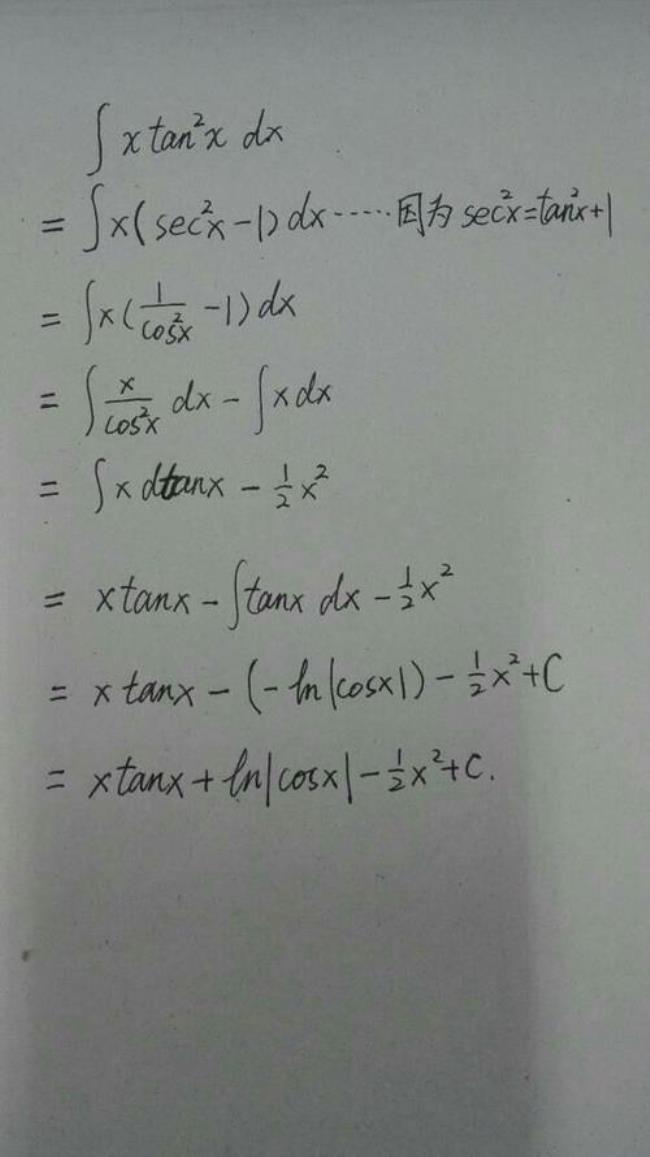 ∫ x tan²x dx
= ∫ x( sec²x - 1) dx ······因为 sec²x = tan²x + 1
= ∫ x( 1/cos²x - 1) dx
= ∫ x/cos²x dx - ∫ x dx
= ∫ x dtanx - 1/2 x²
= x tanx - ∫ tanx dx - 1/2 x²
= x tanx - (- ln|cosx|) - 1/2 x² + C
= x tanx + ln|cosx| - 1/2 x² + C.